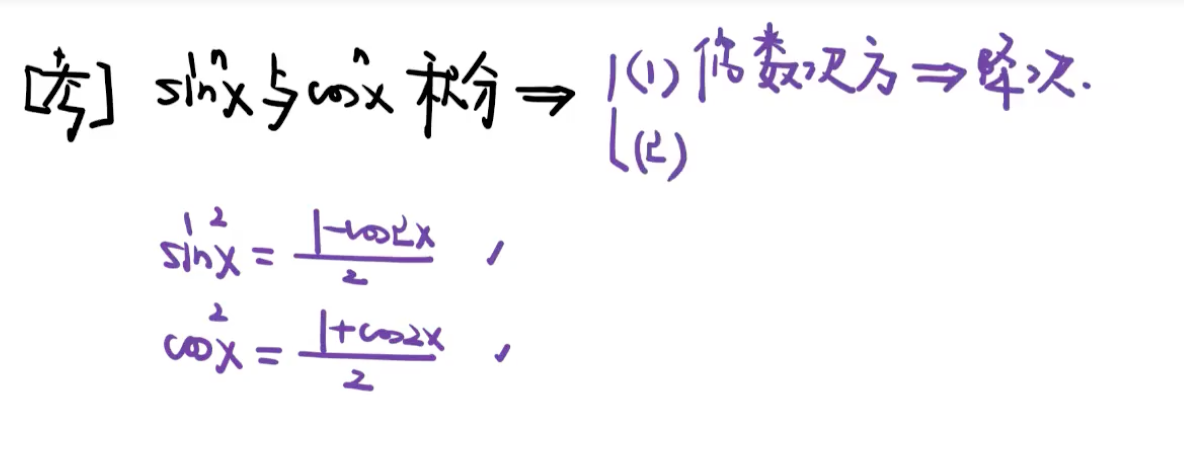 [考] sinⁿx与cosⁿx 积分 ⇒ (1) 偶数次方 ⇒ 降次.
(2)
sin²x = (1-cos2x)/2 ,
cos²x = (1+cos2x)/2 ,